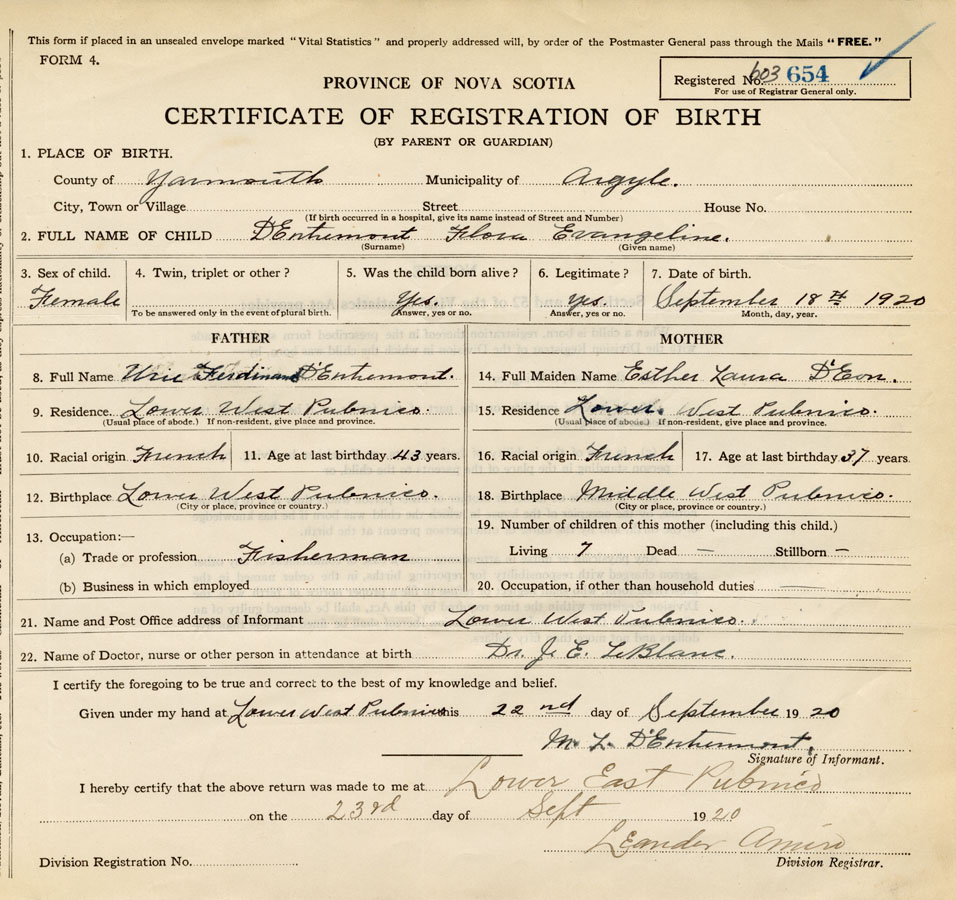 This form if placed in an unsealed envelope marked "Vital Statistics" and properly addressed will, by order of the Postmaster General pass through the Mails "FREE."
FORM 4.
Registered No. 603 654
For use of Registrar General only.
PROVINCE OF NOVA SCOTIA
CERTIFICATE OF REGISTRATION OF BIRTH
(BY PARENT OR GUARDIAN)
1. PLACE OF BIRTH.
County of Yarmouth Municipality of Argyle.
City, Town or Village Street House No.
(If birth occurred in a hospital, give its name instead of Street and Number)
2. FULL NAME OF CHILD D'Entremont Flora Evangeline.
(Surname) (Given name)
3. Sex of child. 4. Twin, triplet or other? 5. Was the child born alive? 6. Legitimate? 7. Date of birth.
Female Yes. Yes. September 18th 1920
To be answered only in the event of plural birth. Answer, yes or no. Answer, yes or no. Month, day, year.
FATHER MOTHER
8. Full Name Ferdinand D'Entremont. 14. Full Maiden Name Esther Laura D'Eon.
9. Residence. Lower West Pubnico. 15. Residence Lower West Pubnico.
(Usual place of abode.) If non-resident, give place and province. (Usual place of abode.) If non-resident, give place and province.
10. Racial origin French 11. Age at last birthday 43 years. 16. Racial origin French 17. Age at last birthday 37 years.
12. Birthplace Lower West Pubnico. 18. Birthplace Middle West Pubnico.
(City or place, province or country.) (City or place, province or country.)
13. Occupation:— 19. Number of children of this mother (including this child.)
(a) Trade or profession Fisherman Living 7 Dead — Stillborn —
(b) Business in which employed 20. Occupation, if other than household duties
21. Name and Post Office address of Informant Lower West Pubnico.
22. Name of Doctor, nurse or other person in attendance at birth Dr. J. E. LeBlanc.
I certify the foregoing to be true and correct to the best of my knowledge and belief.
Given under my hand at Lower West Pubnico this 22nd day of September 1920
M. L. D'Entremont.
Signature of Informant.
I hereby certify that the above return was made to me at Lower East Pubnico
on the 23rd day of Sept 1920
Leander Amiro
Division Registration No. Division Registrar.